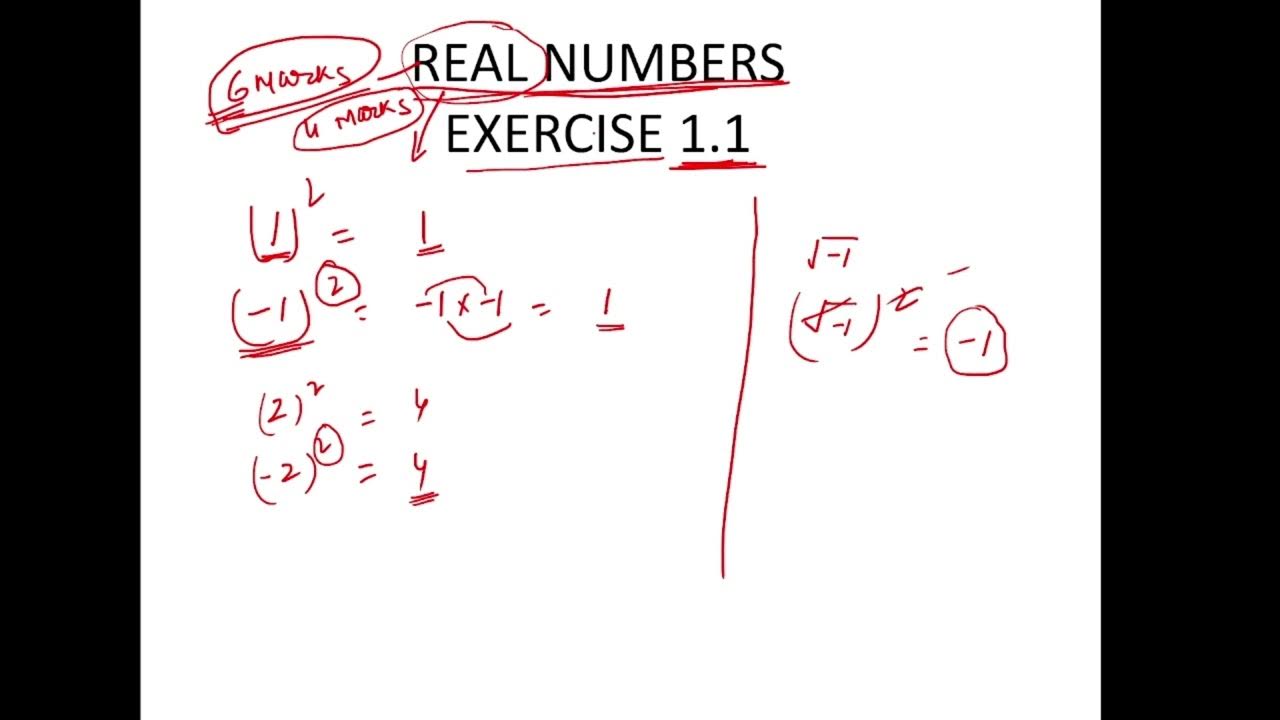 6 Marks REAL NUMBERS
4 Marks EXERCISE 1.1
(1)² = 1
(-1)² = -1 × -1 = 1
(2)² = 4
(-2)² = 4
√-1
(√-1)² = -1